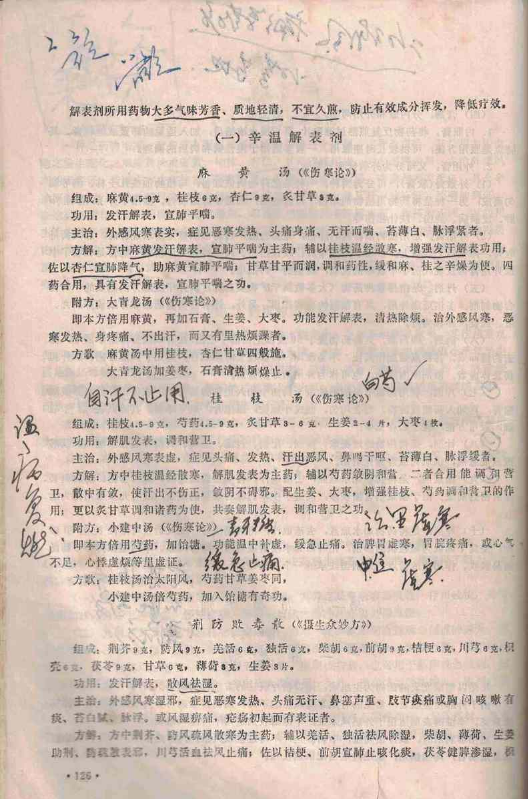 解表剂所用药物大多气味芳香、质地轻清，不宜久煎，防止有效成分挥发，降低疗效。
（一）辛温解表剂
麻黄汤（《伤寒论》）
组成：麻黄4.5-9克，桂枝6克，杏仁9克，炙甘草3克。
功用：发汗解表，宣肺平喘。
主治：外感风寒表实，症见恶寒发热、头痛身痛、无汗而喘、苔薄白、脉浮紧者。
方解：方中麻黄发汗解表，宣肺平喘为主药；辅以桂枝温经散寒，增强发汗解表功用；
佐以杏仁宣肺降气，助麻黄宣肺平喘；甘草甘平而润，调和药性，缓和麻、桂之辛燥为使。四
药合用，具有发汗解表，宣肺平喘之功。
附方：大青龙汤（《伤寒论》）
即本方倍用麻黄，再加石膏、生姜、大枣。功能发汗解表，清热除烦。治外感风寒，恶
寒发热、身疼痛、不出汗，而又有里热烦躁者。
方歌 麻黄汤中用桂枝，杏仁甘草四般施。
大青龙汤加姜枣，石膏清热烦燥止。
自汗不止用 白芍
桂枝汤（《伤寒论》）
组成：桂枝4.5-9克，芍药4.5-9克，炙甘草3-6克，生姜2-4片，大枣4枚。
功用：解肌发表，调和营卫。
主治：外感风寒表虚，症见头痛、发热、汗出恶风、鼻鸣干呕、苔薄白、脉浮缓者。
方解：方中桂枝温经散寒，解肌发表为主药；辅以芍药敛阴和营，二者合用能调和营
卫，散中有敛，使汗出不伤正，敛阴不闭邪。配生姜、大枣，增强桂枝、芍药调和营卫的作
用；更以炙甘草调和诸药为使，共奏解肌发表，调和营卫之功。
附方：小建中汤（《伤寒论》） 治里虚寒
即本方倍用芍药，加饴糖。功能温中补虚，缓急止痛。治脾胃虚寒，胃脘疼痛，或心气
不足，心悸虚烦等里虚证。 缓急止痛 中焦虚寒
方歌：桂枝汤治太阴风，芍药甘草姜枣同，
小建中汤倍芍药，加入饴糖有奇功。
荆防败毒散（《摄生众妙方》）
组成：荆芥9克，防风9克，羌活6克，独活6克，柴胡6克，前胡9克，桔梗6克，川芎6克，枳
壳6克，茯苓9克，甘草6克，薄荷3克，生姜3片。
功用：发汗解表，散风祛湿。
主治：外感风寒湿邪，症见恶寒发热、头痛无汗、鼻塞声重、肢节痠痛或胸闷咳嗽有
痰、苔白腻、脉浮。或风湿痹痛，疮疡初起而有表证者。
方解：方中荆芥、防风疏风散寒为主药；辅以羌活、独活祛风除湿，柴胡、薄荷、生姜
助荆、防疏散表邪，川芎活血祛风止痛；佐以桔梗、前胡宣肺止咳化痰，茯苓健脾渗湿，枳
·126·